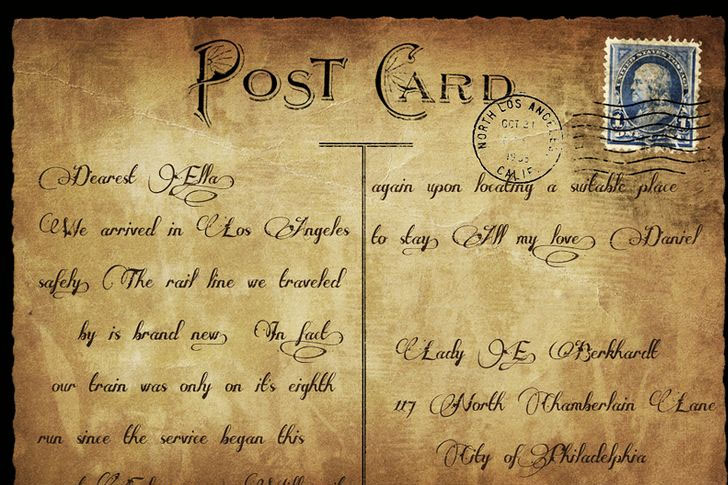 POST CARD
NORTH LOS ANGELES
OCT 21
CALIF
Dearest Ella
We arrived in Los Angeles
safely The rail line we traveled
by is brand new In fact
our train was only on it's eighth
run since the service began this
again upon locating a suitable place
to stay All my love Daniel
Lady E Berkhardt
117 North Chamberlain Lane
City of Philadelphia